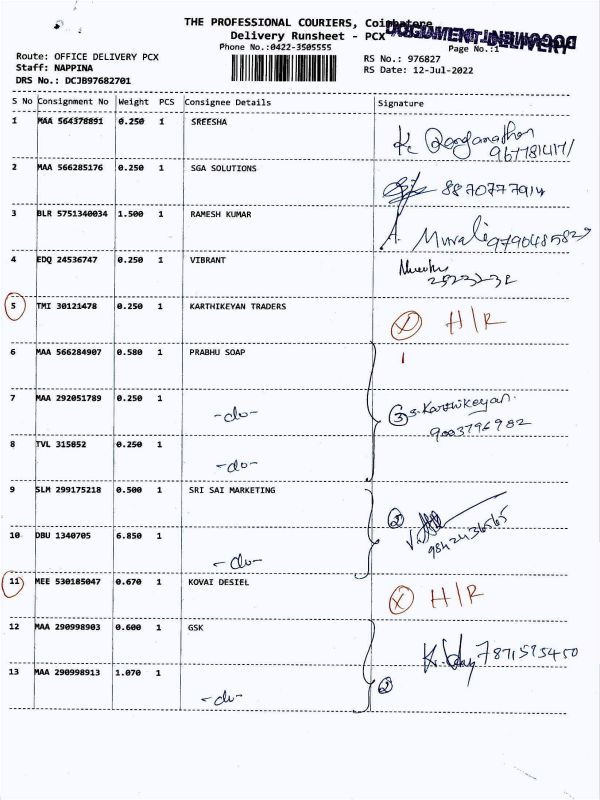 THE PROFESSIONAL COURIERS, Coimbatore
Delivery Runsheet - PCX
Phone No.:0422-3505555
Page No.:1
Route: OFFICE DELIVERY PCX
RS No.: 976827
Staff: NAPPINA
RS Date: 12-Jul-2022
DRS No.: DCJB97682701
S No Consignment No Weight PCS Consignee Details Signature
1 MAA 564378891 0.250 1 SREESHA
K. Ranganathan
2 MAA 566285176 0.250 1 SGA SOLUTIONS
8870777914
3 BLR 5751340034 1.500 1 RAMESH KUMAR
A. Murali 9790485829
4 EDQ 24536747 0.250 1 VIBRANT
5 TMI 30121478 0.250 1 KARTHIKEYAN TRADERS
X H/R
6 MAA 566284907 0.580 1 PRABHU SOAP
7 MAA 292051789 0.250 1 -do-
3 S. Karthikeyan.
9003796982
8 TVL 315852 0.250 1 -do-
9 SLM 299175218 0.500 1 SRI SAI MARKETING
2
9842436565
10 DBU 1340705 6.850 1 -do-
11 MEE 530185047 0.670 1 KOVAI DESIEL
X H/R
12 MAA 290998903 0.600 1 GSK
7871595450
13 MAA 290998913 1.070 1 -do-
2